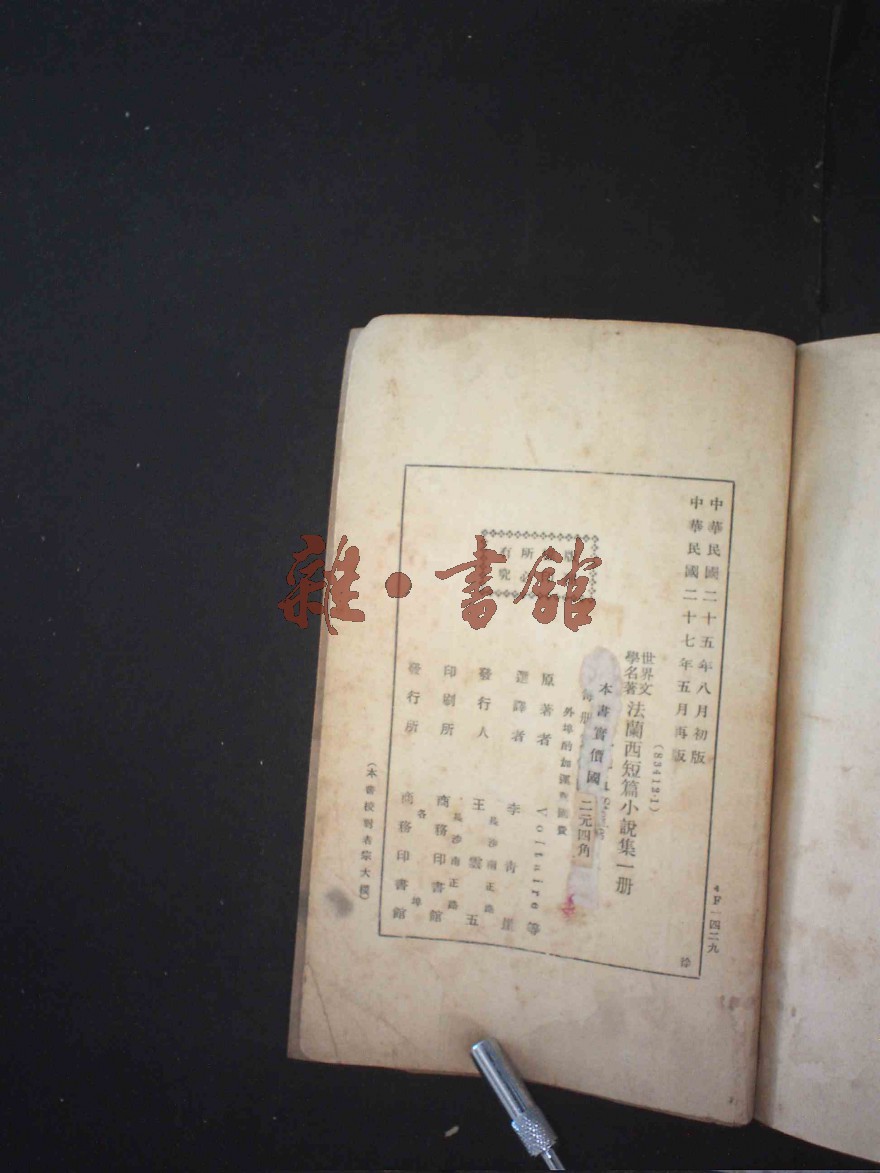 中華民國二十五年八月初版
中華民國二十七年五月再版
＊F一四二九
(83412·1)
世界文
學名著
法蘭西短篇小說集一册
本書實價國
二元四角
每册
外埠酌加運費匯費
原著者 Voltaire等
選譯者 李青崖
發行人 王雲五
長沙南正路
印刷所 商務印書館
長沙南正路
發行所 商務印書館
各埠
(本書校對者
徐
版
所
有
究
雜·書館